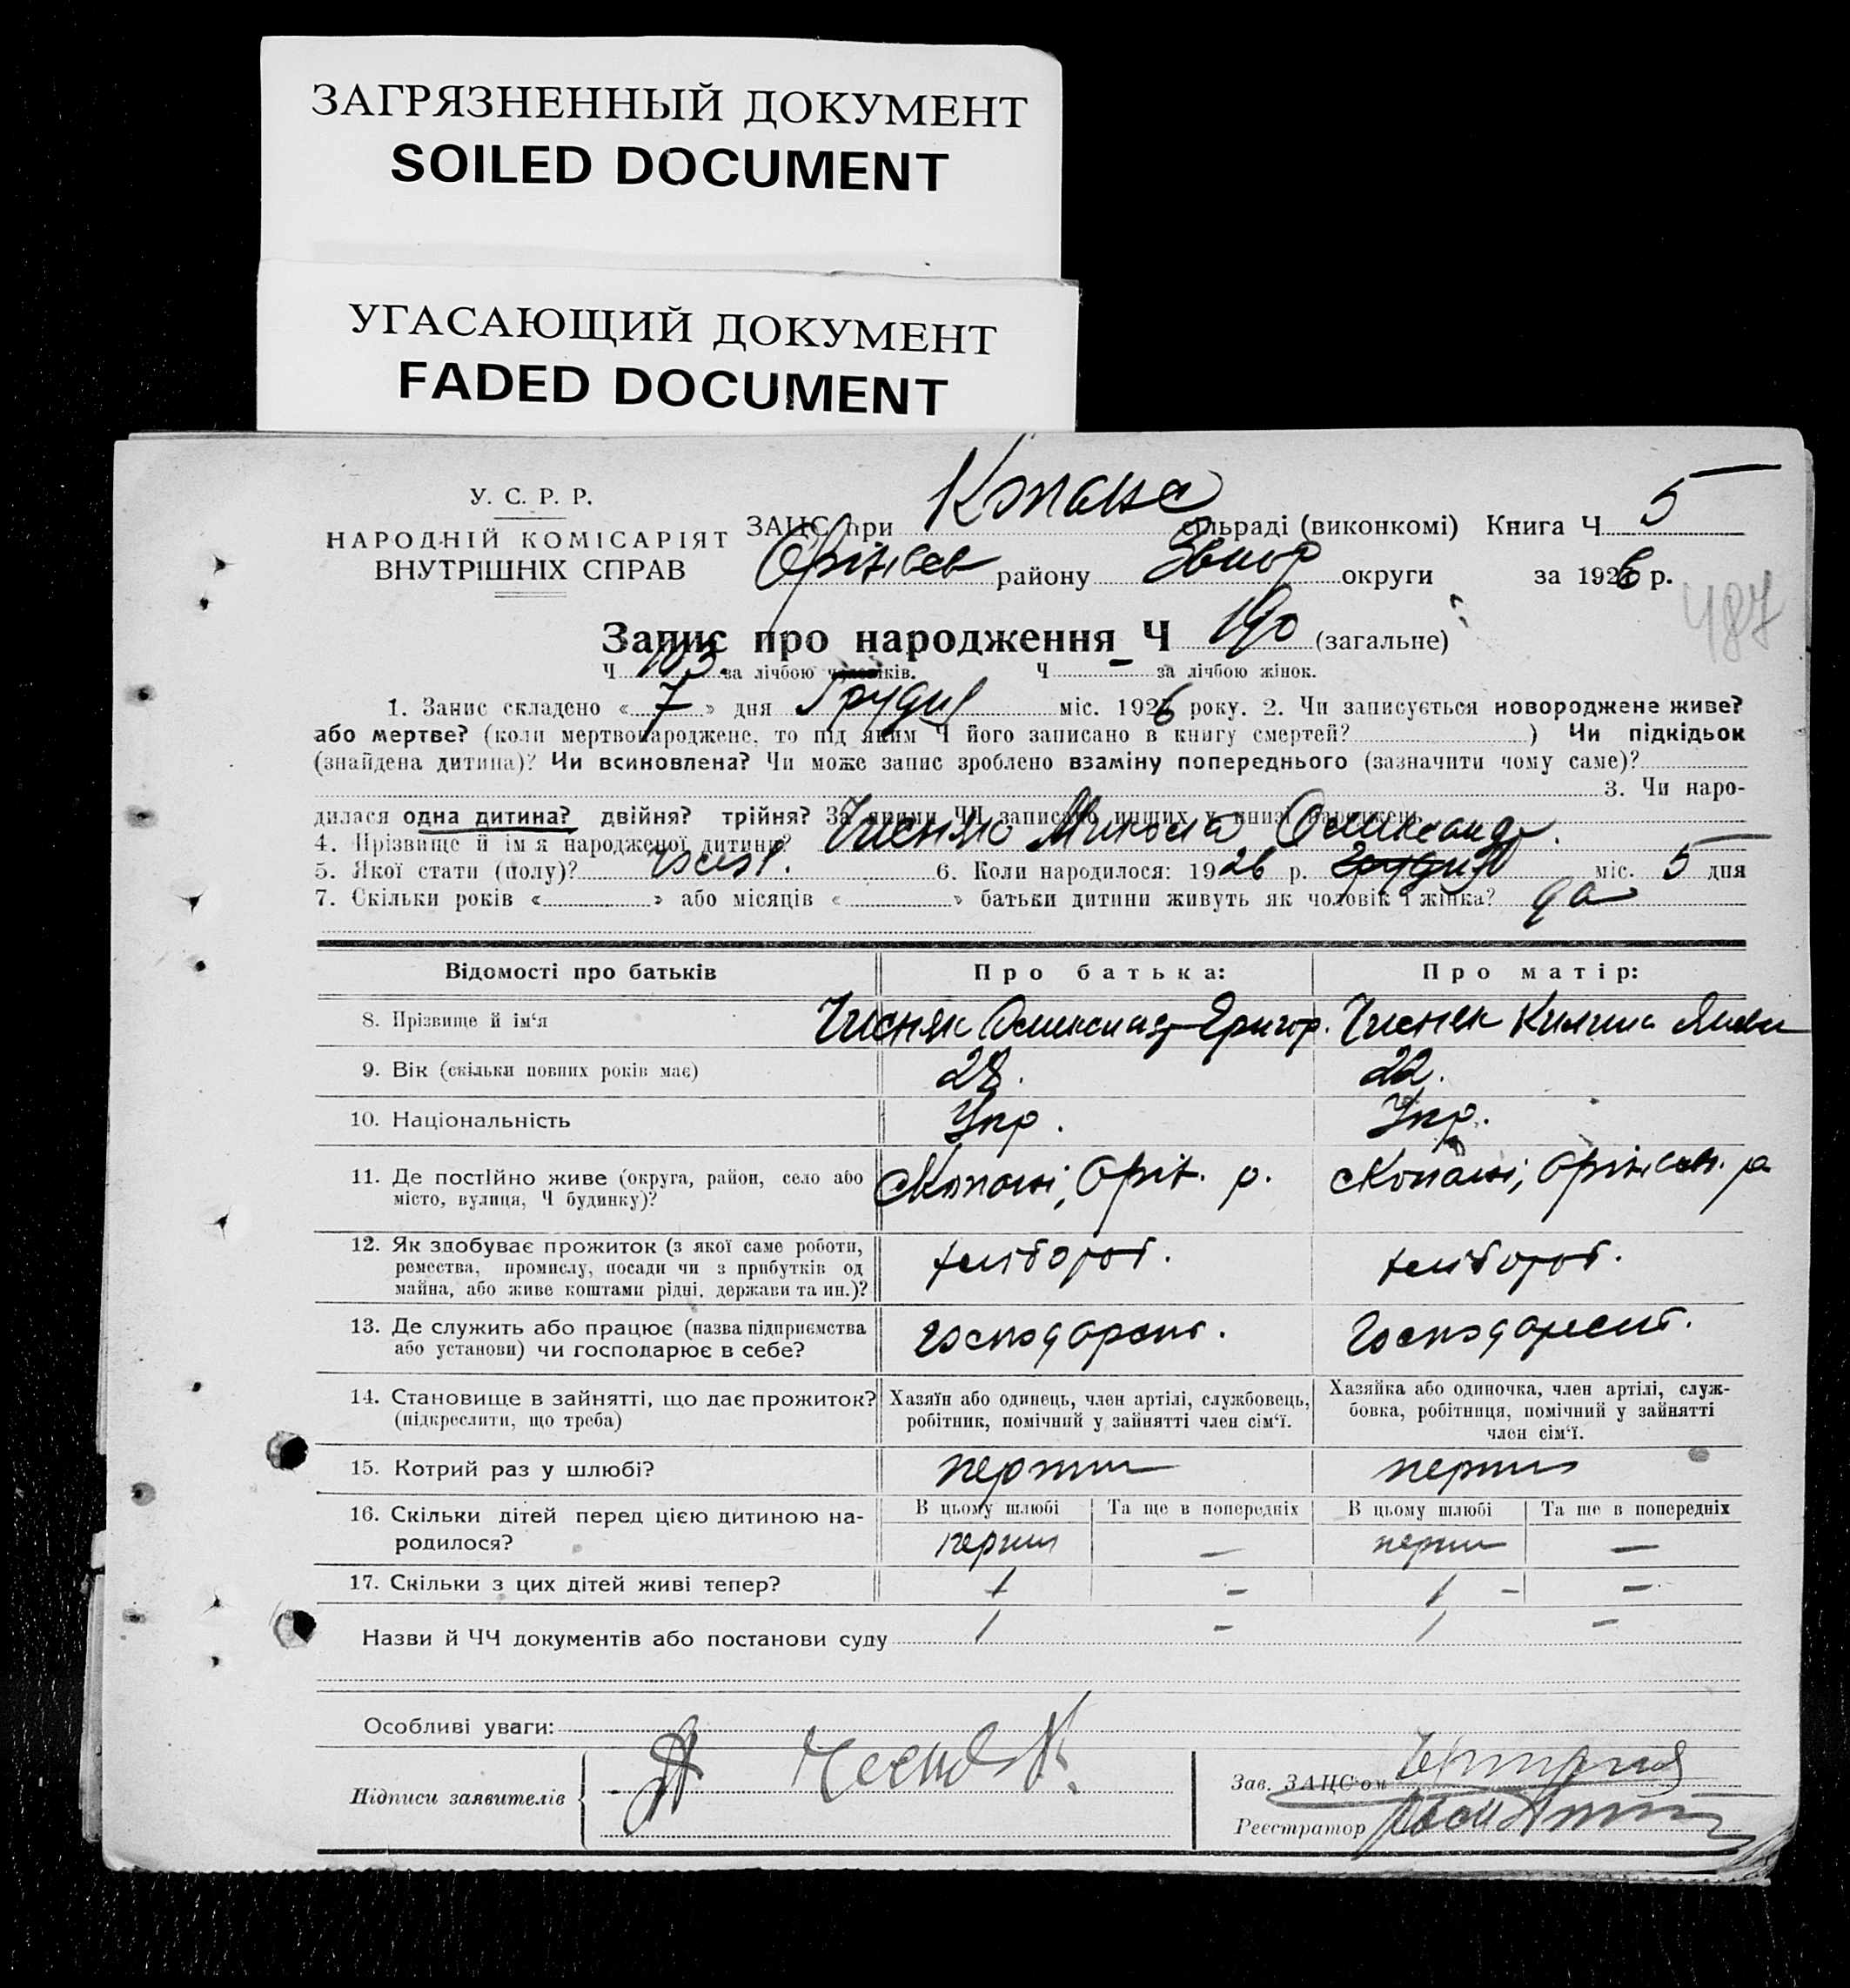 ЗАГРЯЗНЕННЫЙ ДОКУМЕНТ
SOILED DOCUMENT
УГАСАЮЩИЙ ДОКУМЕНТ
FADED DOCUMENT
У. С. Р. Р.
НАРОДНІЙ КОМІСАРІЯТ
ВНУТРІШНІХ СПРАВ
ЗАЦС при сільраді (виконкомі) Книга Ч 5
району округи за 1926 р.
487
Запис про народження Ч 190 (загальне)
Ч 103 за лічбою чоловіків. Ч – за лічбою жінок.
1. Запис складено « 7 » дня Грудня міс. 1926 року. 2. Чи записується новороджене живе?
або мертве? (коли мертвонароджене, то під яким Ч його записано в книгу смертей? ) Чи підкідьок
(знайдена дитина)? Чи всиновлена? Чи може запис зроблено взаміну попереднього (зазначити чому саме)?
3. Чи наро-
дилася одна дитина? двійня? трійня? За якими ЧЧ записано инших у книзі народжень
4. Прізвище й ім'я народженої дитини? Чисняк Микола Олександр.
5. Якої стати (полу)? 6. Коли народилося: 1926 р. грудня міс. 5 дня
7. Скільки років « » або місяців « » батьки дитини живуть як чоловік і жінка? да
Відомості про батьків Про батька: Про матір:
8. Прізвище й ім'я Чисняк Олександр Григор. Чисняк Килина
9. Вік (скільки повних років має) 28. 22.
10. Національність Укр. Укр.
11. Де постійно живе (округа, район, село або Копані, Оріх. р. Копані, Оріхів. р
місто, вулиця, Ч будинку)?
12. Як здобуває прожиток (з якої саме роботи, хлібороб. хлібороб.
ремества, промислу, посади чи з прибутків од
майна, або живе коштами рідні, держави та ин.)?
13. Де служить або працює (назва підприємства
або установи) чи господарює в себе?
14. Становище в зайнятті, що дає прожиток? Хазяїн або одинець, член артілі, службовець, Хазяйка або одиночка, член артілі, служ-
(підкреслити, що треба) робітник, помічний у зайнятті член сім'ї. бовка, робітниця, помічний у зайнятті
член сім'ї.
15. Котрий раз у шлюбі?
16. Скільки дітей перед цією дитиною на- В цьому шлюбі Та ще в попередніх В цьому шлюбі Та ще в попередніх
родилося? – –
17. Скільки з цих дітей живі тепер? 1 – 1 – –
Назви й ЧЧ документів або постанови суду
Особливі уваги:
Підписи заявителів
Зав. ЗАЦС'ом
Реєстратор